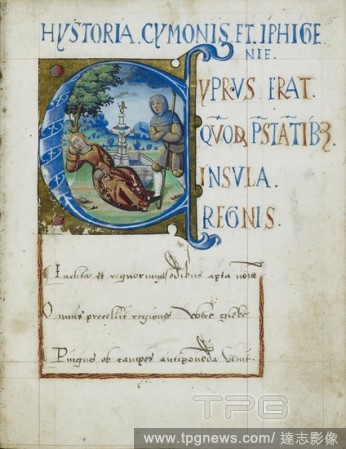 HYSTORIA. CYMONIS. ET. IPHIGE
NIE.
YPRVS ERAT.
QVOD PSTATIBZ
INSVLA.
REGNIS.
Inclita et regnor
apta
Omnis precellit regiones
glebe
Pinguis ob campos anteponenda venit.
TPG
www.tpgnews.com/ 達志影像